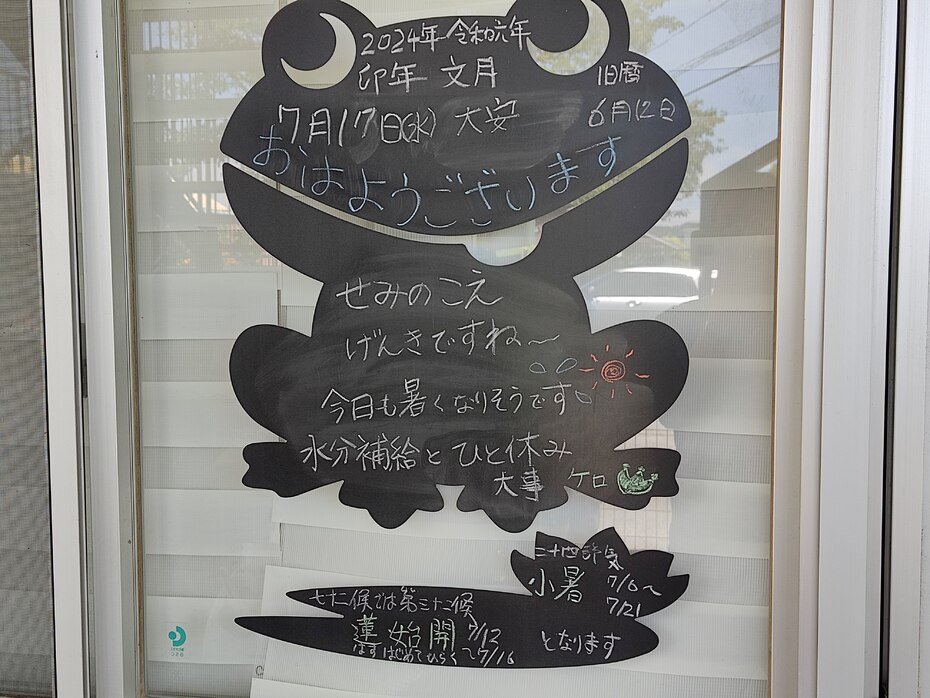 2024年 令和六年
卯年 文月
旧暦
7月17日(水) 大安
6月12日
おはようございます
せみのこえ
げんきですね～
今日も暑くなりそうです
水分補給とひと休み
大事 ケロ
二十四節気
小暑 7/6～
7/21
七十二候では第三十二候
蓮始開 7/12
はすはじめてひらく ～7/16
となります